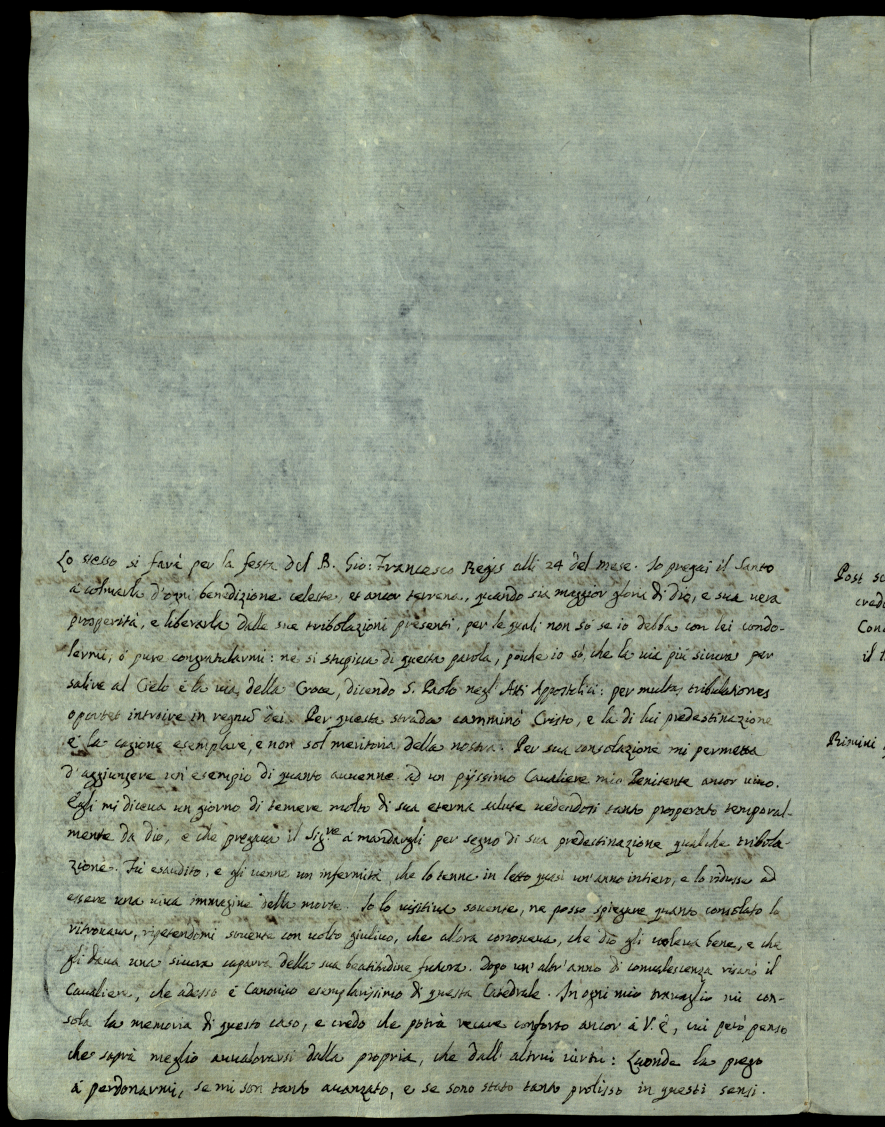 Lo stesso si farà per la festa del B. Gio: Francesco Regis alli 24 del mese. Io pregai il Santo
à colmarla d'ogni benedizione celeste, et ancor terrena, quando sia maggior gloria di dio, e sua vera
prosperità, e liberarla dalle sue tribolazioni presenti, per le quali non sò se io debba con lei condo-
lermi, ò pure congratularmi: ne si stupisca di questa parola, poiche io sò, che la via più sicura per
salire al Cielo è la via della Croce, dicendo S. Paolo negl'Atti Appostolici: per multas tribulationes
oportet introire in regnũ dei. Per questa strada camminò Cristo, e la di lui predestinazione
è la cagione esemplare, e non sol meritoria della nostra. Per sua consolazione mi permetta
d'aggiungere un'esempio di quanto auuenne ad un pijssimo Caualiere mio Penitente ancor uiuo.
Egli mi diceua un giorno di temere molto di sua eterna salute uedendosi tanto prosperato temporal-
mente da dio, e che pregaua il Sig.re à mandargli per segno di sua predestinazione qualche tribola-
zione. Fù esaudito, e gli uenne un infermità, che lo tenne in letto quasi un'anno intiero, e lo ridusse ad
essere una uiua immagine della morte. Io lo uisitaua souente, ne posso spiegare quanto consolato lo
ritrouaua, ripetendomi souente con uolto giuliuo, che allora conosceua, che dio gli uoleua bene, e che
gli daua una sicura caparra della sua beatitudine futura. Dopo un'altr'anno di conualescenza risanò il
Caualiere, che adesso è Canonico esemplarissimo di questa Catedrale. In ogni mio trauaglio mi con-
sola la memoria di questo caso, e credo che potrà recare conforto ancor à V. E., cui però penso
che saprà meglio aualorarsi dalla propria, che dall'altrui uirtù: Laonde la prego
à perdonarmi, se mi son tanto auanzato, e se sono stato tanto prolisso in questi sensi.
Post
Rimini